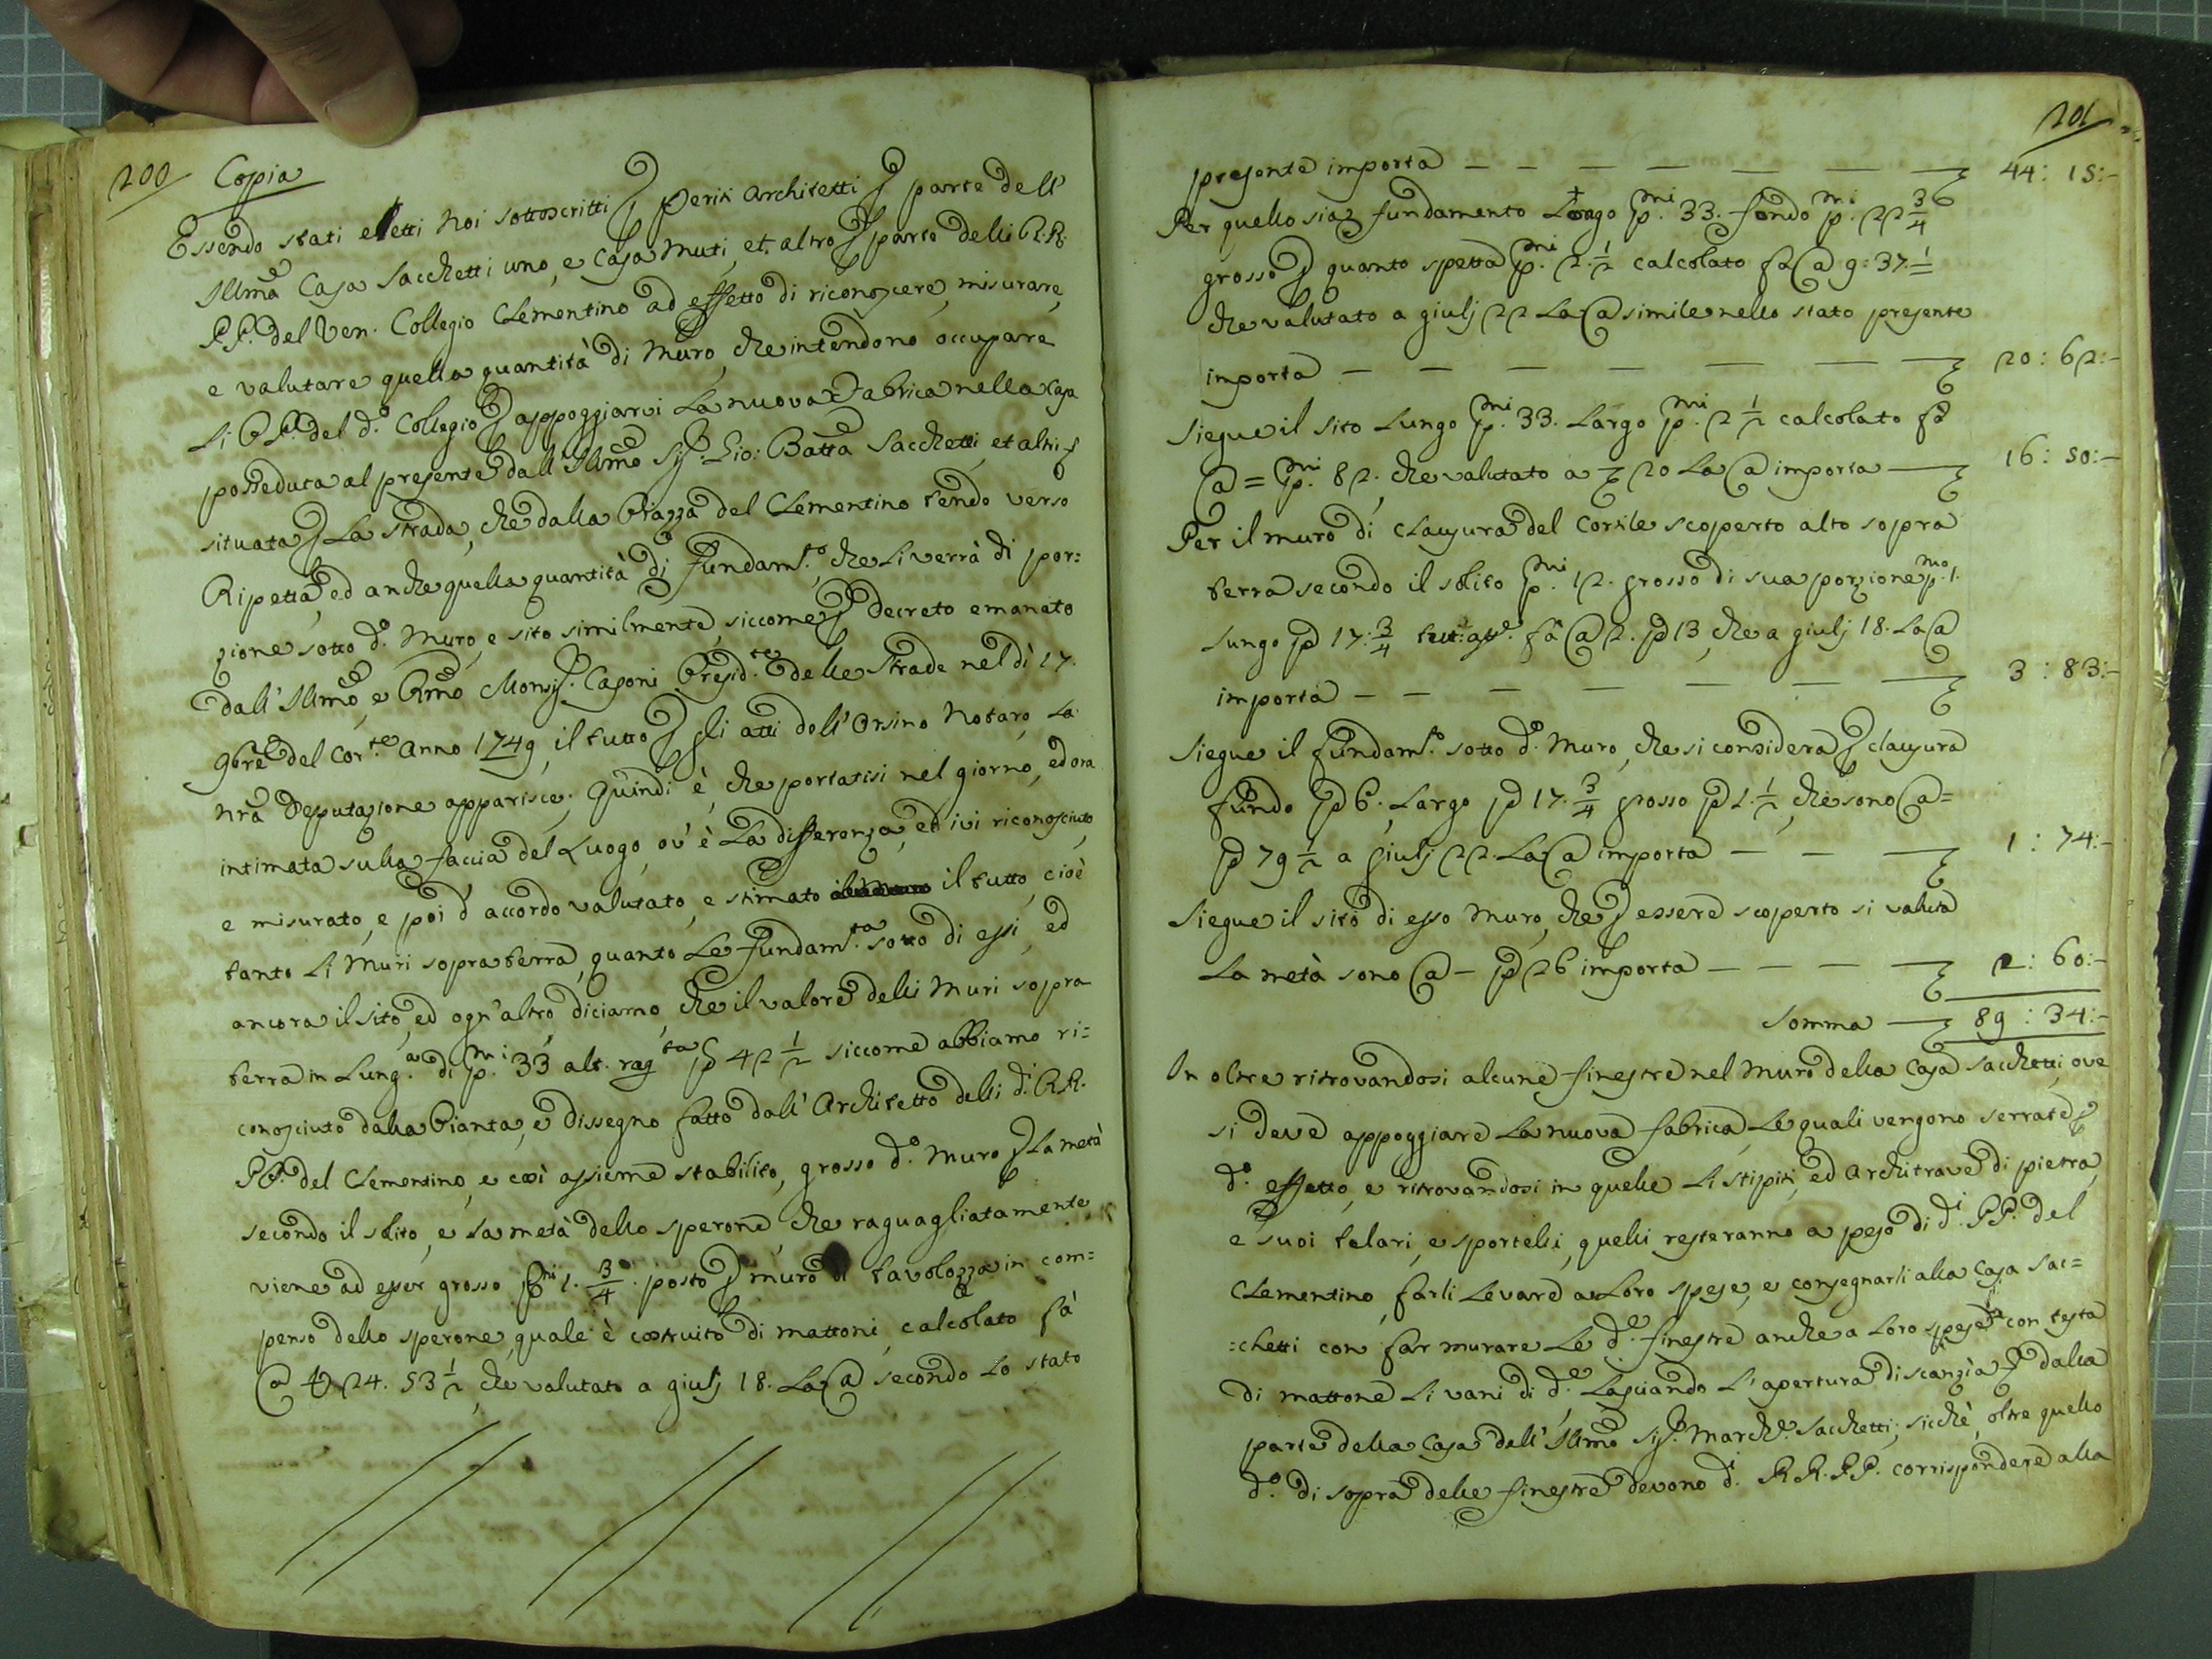 200 Copia
Essendo stati eletti Noi sottoscritti ꝑ Periti Architetti ꝑ parte dell'
Illma Casa Sacchetti uno, e Casa Muti, et altro ꝑ parte delli RR.
PP. del Ven. Collegio Clementino ad effetto di riconoscere, misurare,
e valutare quella quantità di Muro, che intendono occupare
Li PP. del d.º Collegio ꝑ appoggiarvi La nuova Fabrica nella Casa
posseduta al presente dall' Illmo Sig.r Gio: Batta Sacchetti, et altri
situata ꝑ La Strada, che dalla Piazza del Clementino tende verso
Ripetta, ed anche quella quantità di fundam.to, che Li verrà di por:
zione sotto d.º Muro, e sito similmente, siccome ꝑ decreto emanato
dall' Illmo, e Rmo Monsig.r Casoni Presid.te delle Strade nel dì 17.
9bre del cor.te anno 1749, il tutto ꝑ gli atti dell' Orsino Notaro, La
nra Deputazione apparisce. Quindi è, che portatisi nel giorno, ed ora
intimata sulla faccia del Luogo, ov' è La differenza, ed ivi riconosciuto,
e misurato, e poi d' accordo valutato, e stimato il tutto, cioè
tanto Li Muri sopra terra, quanto Le fundam.ta sotto di essi, ed
ancora il sito, ed ogn' altro, diciamo, che il valore delli Muri sopra
terra in Lung.a di p.mi 33 alt. rag.ta p 42 1/2 siccome abbiamo ri=
conosciuto dalla Pianta, e dissegno fatto dall' Architetto delli d.i RR.
PP. del Clementino, e così assieme stabilito, grosso d.º Muro ꝑ La metà
secondo il solito, e La metà dello sperone, che raguagliatamente
viene ad esser grosso p.mi 1. 3/4. posto ꝑ muro di tavolozza in com=
penso dello sperone, quale è costruito di mattoni, calcolato fà
@ 24. 53 1/2, che valutato a giulj 18. La @ secondo Lo stato
201
presente importa — — — — — — 44: 15:-
Per quello sia fundamento Longo p.mi 33. fondo p.mi 22 3/4
grosso ꝑ quanto spetta p.mi 2. 1/2 calcolato fà @ 9: 37. 1/2
che valutato a giulj 22 La @ simile nello stato presente
importa — — — — — — 20: 62:-
Siegue il sito Lungo p.mi 33. Largo p.mi 2 1/2 calcolato fà
@ = p.mi 82. che valutato a 20 La @ importa — 16: 50:-
Per il muro di clausura del Cortile scoperto alto sopra
terra secondo il solito p.mi 12. grosso di sua porzione p.mo 1.
Lungo p 17: 3/4 fà @ 2. p 13, che a giulj 18. La @
importa — — — — — — 3: 83:-
Siegue il fundam.to sotto d.º Muro, che si considera ꝑ clausura
fundo p 6. Largo p 17. 3/4 grosso p 1. 1/2, che sono @ =
p 79 1/2 a giulj 22. La @ importa — — — 1: 74:-
Siegue il sito di esso Muro, che ꝑ essere scoperto si valuta
La metà sono @ — p 26 importa — — — — 2: 60:-
Somma — 89: 34:-
In oltre ritrovandosi alcune finestre nel Muro della Casa Sacchetti, ove
si deve appoggiare La nuova fabrica, Le quali vengono serrate ꝑ
d.º effetto, e ritrovandosi in quelle Li Stipiti, ed Architrave di pietra,
e suoi telari, e sportelli, quelli resteranno a peso di d.i PP. del
Clementino farli Levare a Loro spese, e consegnarli alla Casa Sac=
:chetti con far murare Le d.e finestre anche a Loro spese con testa
di mattone Li vani di d.e Lasciando L' apertura di scanzìa ꝑ dalla
parte della Casa dell' Illmo Sig.r March.e Sacchetti; sicchè, oltre quello
d.º di sopra delle finestre devono d.i RR. PP. corrispondere alla